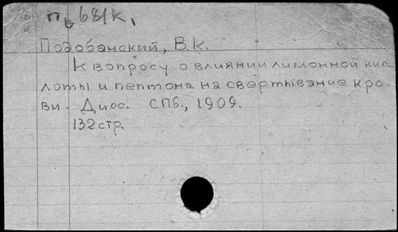 п₆ 681к.
Подобанский, В.К.
К вопросу о влиянии лимонной кис
лоты и пептона на свертывание кро-
ви. Дисс. СПб., 1909.
132 стр.